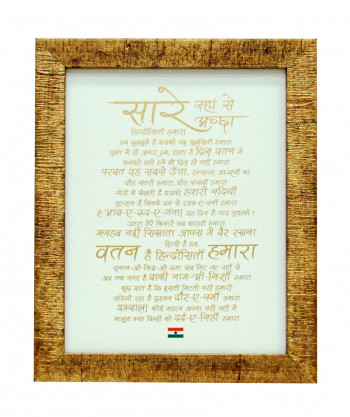 सारे जहां से
अच्छा
हिन्दोसिताँ हमारा
हम बुलबुलें हैं इसकी यह गुलसिताँ हमारा
ग़ुर्बत में हों अगर हम, रहता है दिल वतन में
समझो वहीं हमें भी दिल हो जहाँ हमारा
परबत वह सबसे ऊँचा, हमसाया आसमाँ का
वह संतरी हमारा, वह पासबाँ हमारा
गोदी में खेलती हैं इसकी हज़ारों नदियाँ
गुलशन है जिनके दम से रश्क-ए-जनाँ हमारा
ऐ आब-ए-रूद-ए-गंगा! वह दिन हैं याद तुझको?
उतरा तेरे किनारे जब कारवाँ हमारा
मज़हब नहीं सिखाता आपस में बैर रखना
हिन्दी हैं हम,
वतन है हिन्दोसिताँ हमारा
यूनान-ओ-मिस्र-ओ-रूमा सब मिट गए जहाँ से
अब तक मगर है बाक़ी नाम-ओ-निशाँ हमारा
कुछ बात है कि हस्ती मिटती नहीं हमारी
सदियों रहा है दुश्मन दौर-ए-ज़माँ हमारा
इक़बाल! कोई महरम अपना नहीं जहाँ में
मालूम क्या किसी को दर्द-ए-निहाँ हमारा